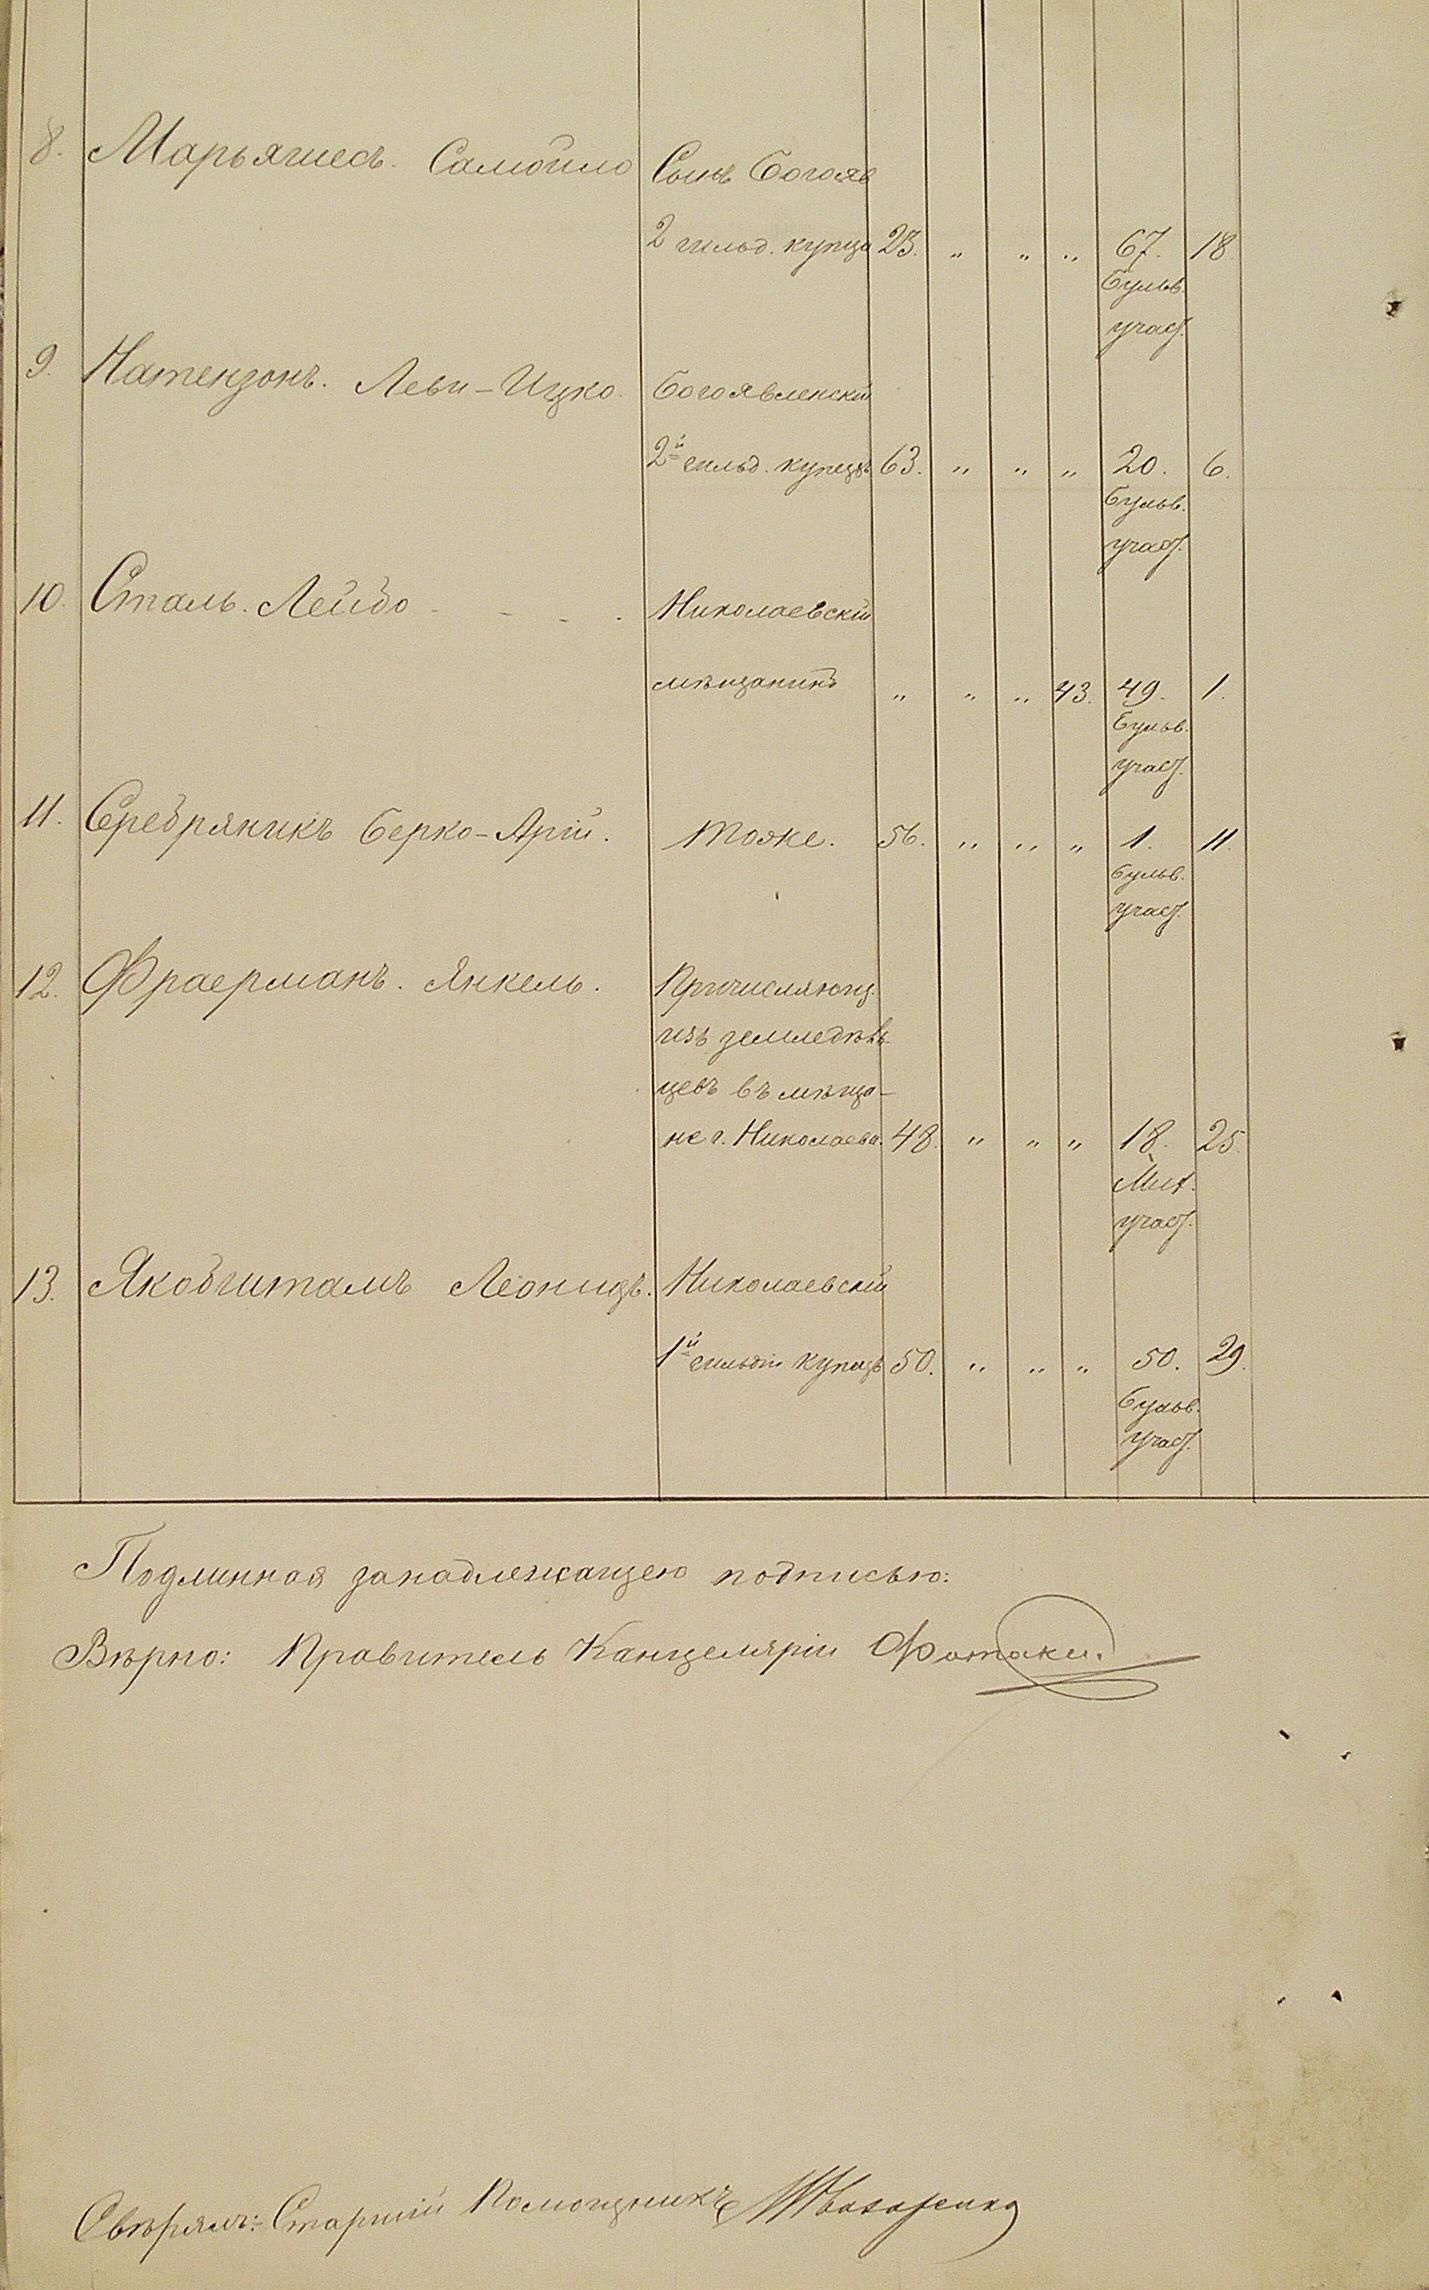 8. Марьяшесъ. Самойло Сынъ Богояв
2 гильд. купца 23. " " " 67. 18.
Бульв.
участ.
9. Натензонъ. Леви-Ицко. Богоявленскій
2й гильд. купецъ 63. " " " 20. 6.
Бульв.
участ.
10. Сталь. Лейбо - - - . Николаевскій
мѣщанинъ " " " 43. 49. 1.
Бульв.
участ.
11. Серебряникъ Берко-Арій. Тоже. 56. " " " 1. 11.
Бульв.
участ.
12. Фраерманъ. Янкель. Причисляющ.
изъ земледѣль
цевъ въ мѣща-
не г. Николаева. 48. " " " 18. 25.
Мих.
участ.
13. Якобштамъ Леонидъ. Николаевскій
1й гильдіи купецъ 50. " " " 50. 29.
Бульв.
участ.
Подлинная занадлежащею подписью:
Вѣрно: Правитель Канцеляріи Фотаки.
Свѣрялъ: Старшій Помощникъ